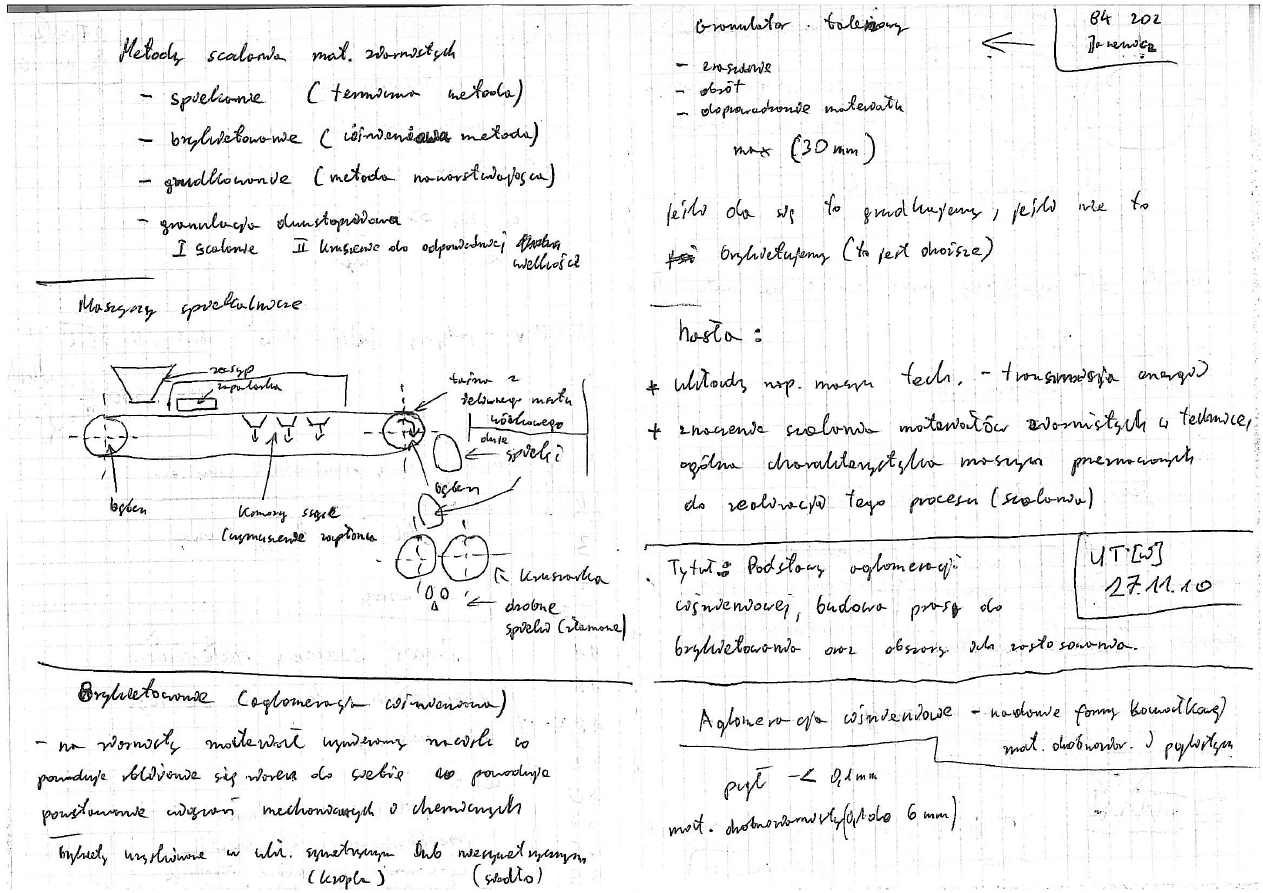 Metody scalania mat. ziarnistych
- spiekanie (termiczna metoda)
- brykietowanie (ciśnieniowa metoda)
- grudkowanie (metoda nawarstwiająca)
- granulacja dwustopniowa
I scalanie II kruszenie do odpowiedniej
wielkości
Maszyny spiekalnicze
zasyp
zapalarka
taśma z
żeliwnego mat.
wózkowego
duże
spieki
bęben
bęben
komory ssące
(wymuszenie zapłonu
kruszarka
drobne
spieki (złamane)
Brykietowanie (aglomeracja ciśnieniowa)
- na ziarnisty materiał wywieramy nacisk co
powoduje zbliżenie się ziaren do siebie co powoduje
powstawanie wiązań mechanicznych i chemicznych
brykiety uzyskiwane w ukł. symetrycznym lub niesymetrycznym
(kropla) (siodło)
Granulator talerzowy
B4 202
Janewicz
- zraszanie
- obrót
- doprowadzenie materiału
max (30 mm)
jeśli da się to grudkujemy, jeśli nie to
brykietujemy (to jest droższe)
hasła :
* układy nap. maszyn tech. - transmisja energii
* znaczenie scalania materiałów ziarnistych w technice,
ogólna charakterystyka maszyn przeznaczonych
do realizacji tego procesu (scalania)
Tytuł: Podstawy aglomeracji
ciśnieniowej, budowa prasy do
brykietowania oraz obszary ich zastosowania.
UT[W]
27.11.10
Aglomeracja ciśnieniowa - nadanie formy kawałkowej
mat. drobnoziar. i pylistym
pył - < 0,1 mm
mat. drobnoziarnisty (0,1 do 6 mm)